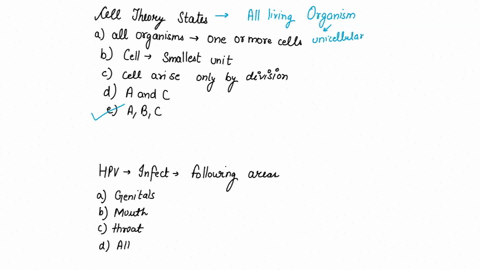 Cell Theory States → All living Organism
a) all organisms → one or more cells unicellular
b) Cell → Smallest unit
c) cell arise only by division
d) A and C
e) A, B, C
HPV → Infect → following areas
a) Genitals
b) Mouth
c) throat
d) All